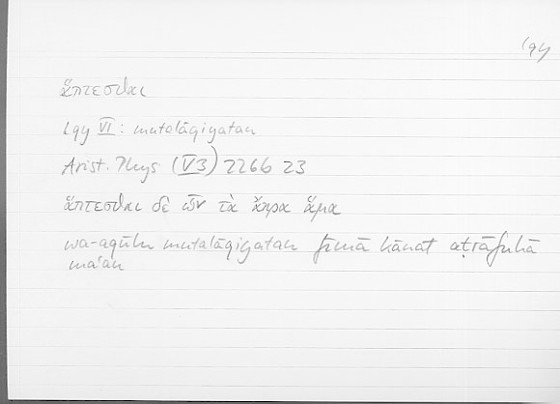 lqy
ἅπτεσθαι
lqy VI: mutalāqiyatan
Arist. Phys (V3) 226b 23
ἅπτεσθαι δὲ ὧν τὰ ἄκρα ἅμα
wa-aqūlu mutalāqiyatan fīmā kānat aṭrāfuhā
ma‘an